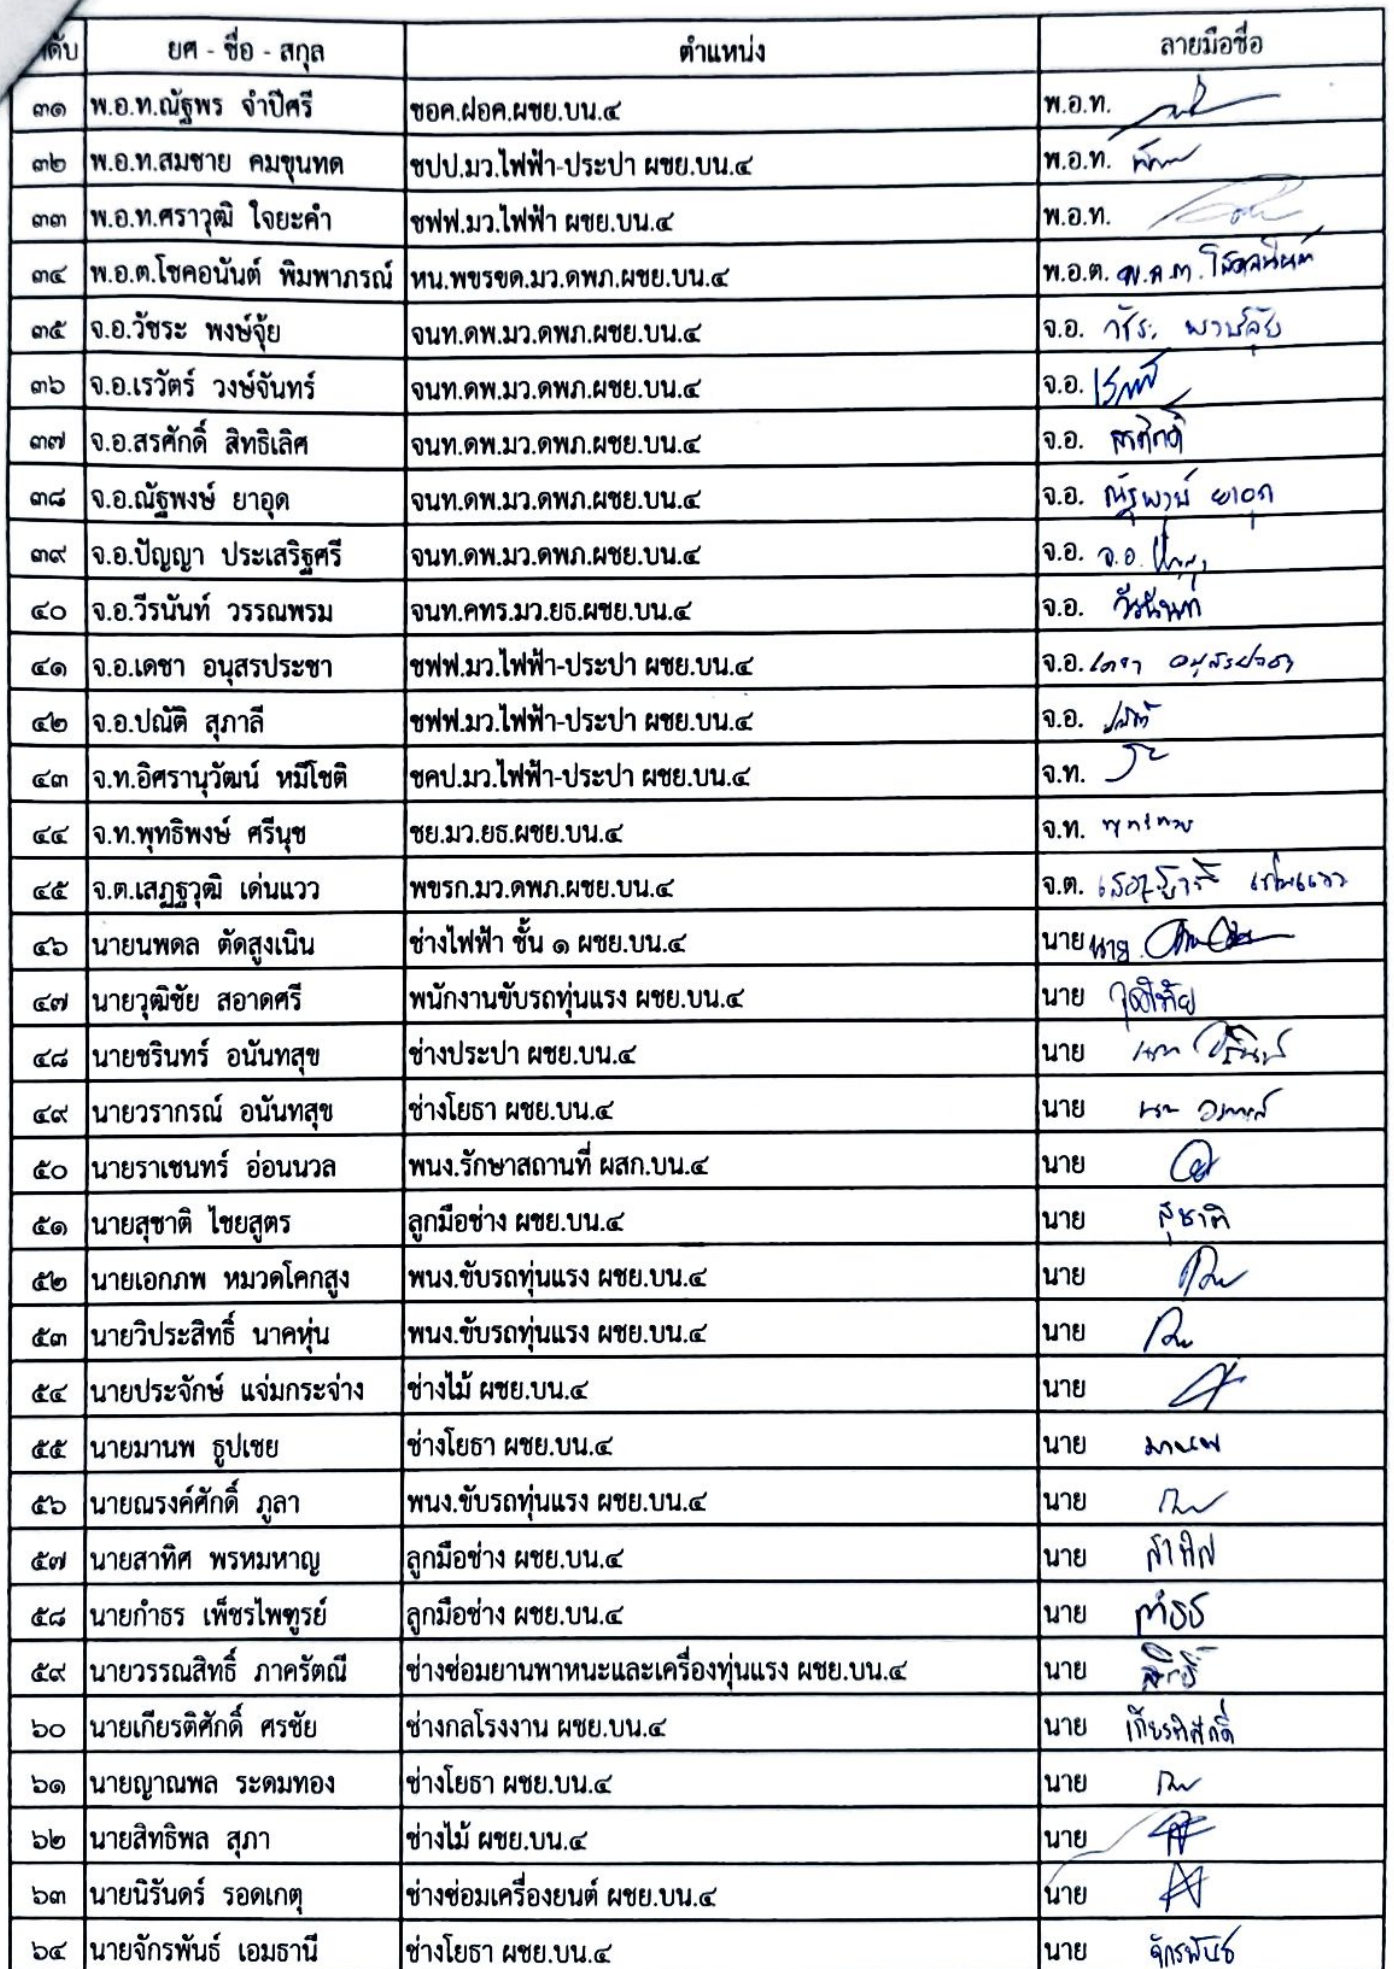 ดับ ยศ - ชื่อ - สกุล ตำแหน่ง ลายมือชื่อ
๓๑ พ.อ.ท.ณัฐพร จำปีศรี ชอค.ฝอค.ผชย.บน.๔ พ.อ.ท.
๓๒ พ.อ.ท.สมชาย คมขุนทด ชปป.มว.ไฟฟ้า-ประปา ผชย.บน.๔ พ.อ.ท.
๓๓ พ.อ.ท.ศราวุฒิ ใจยะคำ ชฟฟ.มว.ไฟฟ้า ผชย.บน.๔ พ.อ.ท.
๓๔ พ.อ.ต.โชคอนันต์ พิมพาภรณ์ หน.พขรขด.มว.ดพภ.ผชย.บน.๔ พ.อ.ต.
๓๕ จ.อ.วัชระ พงษ์จุ้ย จนท.ดพ.มว.ดพภ.ผชย.บน.๔ จ.อ.
๓๖ จ.อ.เรวัตร์ วงษ์จันทร์ จนท.ดพ.มว.ดพภ.ผชย.บน.๔ จ.อ.
๓๗ จ.อ.สรศักดิ์ สิทธิเลิศ จนท.ดพ.มว.ดพภ.ผชย.บน.๔ จ.อ. สรศักดิ์
๓๘ จ.อ.ณัฐพงษ์ ยาอุด จนท.ดพ.มว.ดพภ.ผชย.บน.๔ จ.อ. ณัฐพงษ์ ยาอุด
๓๙ จ.อ.ปัญญา ประเสริฐศรี จนท.ดพ.มว.ดพภ.ผชย.บน.๔ จ.อ. จ.อ.
๔๐ จ.อ.วีรนันท์ วรรณพรม จนท.คทร.มว.ยธ.ผชย.บน.๔ จ.อ. วีรนันท์
๔๑ จ.อ.เดชา อนุสรประชา ชฟฟ.มว.ไฟฟ้า-ประปา ผชย.บน.๔ จ.อ. เดชา อนุสรประชา
๔๒ จ.อ.ปณัติ สุภาลี ชฟฟ.มว.ไฟฟ้า-ประปา ผชย.บน.๔ จ.อ.
๔๓ จ.ท.อิศรานุวัฒน์ หมีโชติ ชคป.มว.ไฟฟ้า-ประปา ผชย.บน.๔ จ.ท.
๔๔ จ.ท.พุทธิพงษ์ ศรีนุช ชย.มว.ยธ.ผชย.บน.๔ จ.ท.
๔๕ จ.ต.เสฏฐวุฒิ เด่นแวว พขรก.มว.ดพภ.ผชย.บน.๔ จ.ต.
๔๖ นายนพดล ตัดสูงเนิน ช่างไฟฟ้า ชั้น ๑ ผชย.บน.๔ นาย นาย
๔๗ นายวุฒิชัย สอาดศรี พนักงานขับรถทุ่นแรง ผชย.บน.๔ นาย วุฒิชัย
๔๘ นายชรินทร์ อนันทสุข ช่างประปา ผชย.บน.๔ นาย
๔๙ นายวรากรณ์ อนันทสุข ช่างโยธา ผชย.บน.๔ นาย
๕๐ นายราเชนทร์ อ่อนนวล พนง.รักษาสถานที่ ผสก.บน.๔ นาย
๕๑ นายสุชาติ ไชยสูตร ลูกมือช่าง ผชย.บน.๔ นาย สุชาติ
๕๒ นายเอกภพ หมวดโคกสูง พนง.ขับรถทุ่นแรง ผชย.บน.๔ นาย
๕๓ นายวิประสิทธิ์ นาคหุ่น พนง.ขับรถทุ่นแรง ผชย.บน.๔ นาย
๕๔ นายประจักษ์ แจ่มกระจ่าง ช่างไม้ ผชย.บน.๔ นาย
๕๕ นายมานพ ธูปเชย ช่างโยธา ผชย.บน.๔ นาย มานพ
๕๖ นายณรงค์ศักดิ์ ภูลา พนง.ขับรถทุ่นแรง ผชย.บน.๔ นาย
๕๗ นายสาทิศ พรหมหาญ ลูกมือช่าง ผชย.บน.๔ นาย สาทิศ
๕๘ นายกำธร เพ็ชรไพฑูรย์ ลูกมือช่าง ผชย.บน.๔ นาย กำธร
๕๙ นายวรรณสิทธิ์ ภาครัตณี ช่างซ่อมยานพาหนะและเครื่องทุ่นแรง ผชย.บน.๔ นาย
๖๐ นายเกียรติศักดิ์ ศรชัย ช่างกลโรงงาน ผชย.บน.๔ นาย เกียรติศักดิ์
๖๑ นายญาณพล ระดมทอง ช่างโยธา ผชย.บน.๔ นาย
๖๒ นายสิทธิพล สุภา ช่างไม้ ผชย.บน.๔ นาย
๖๓ นายนิรันดร์ รอดเกตุ ช่างซ่อมเครื่องยนต์ ผชย.บน.๔ นาย
๖๔ นายจักรพันธ์ เอมธานี ช่างโยธา ผชย.บน.๔ นาย จักรพันธ์